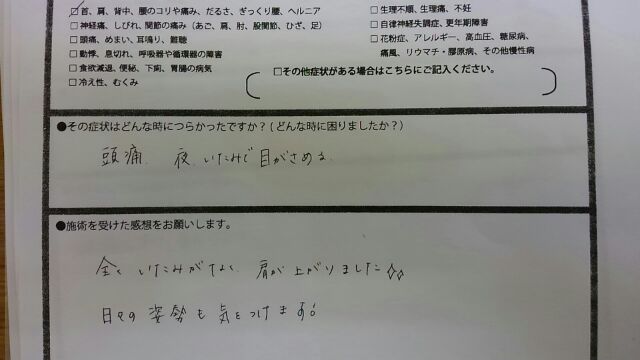 ☑首、肩、背中、腰のコリや痛み、だるさ、ぎっくり腰、ヘルニア
□神経痛、しびれ、関節の痛み(あご、肩、肘、股関節、ひざ、足)
□頭痛、めまい、耳鳴り、難聴
□動悸、息切れ、呼吸器や循環器の障害
□食欲減退、便秘、下痢、胃腸の病気
□冷え性、むくみ
□生理不順、生理痛、不妊
□自律神経失調症、更年期障害
□花粉症、アレルギー、高血圧、糖尿病、
痛風、リウマチ・膠原病、その他慢性病
□その他症状がある場合はこちらにご記入ください。
●その症状はどんな時につらかったですか?(どんな時に困りましたか?)
頭痛、夜いたみで目がさめる。
●施術を受けた感想をお願いします。
全くいたみがなく肩が上がりました
日々の姿勢も気をつけます!